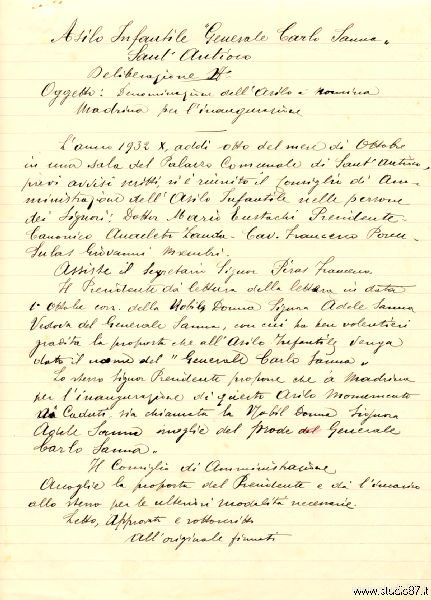 Asilo Infantile "Generale Carlo Sanna"
Sant'Antioco
Deliberazione
Oggetto: Denominazione dell'Asilo e nomina
Madrina per l'inaugurazione
L'anno 1932 X, addì otto del mese di Ottobre
in una sala del Palazzo Comunale di Sant'Antioco,
previ avvisi scritti, si è riunito il Consiglio di Am=
ministrazione dell'Asilo Infantile nelle persone
dei Signori: Dottor Mario Eustachi Presidente-
Canonico Anacleto - Cav. Francesco
Sulas Giovanni Membri.
Assiste il Segretario Signor Piras Francesco.
Il Presidente dà lettura della lettera in data
1° Ottobre corr. della Nobile Donna Signora Adele Sanna
Vedova del Generale Sanna, con cui ha ben volentieri
gradita la proposta che all'Asilo Infantile venga
dato il nome del "Generale Carlo Sanna"
Lo stesso Signor Presidente propone che a Madrina
per l'inaugurazione di questo Asilo Monumento
ai Caduti, sia chiamata la Nobil Donna Signora
Adele Sanna moglie del Prode del Generale
Carlo Sanna.
Il Consiglio di Amministrazione
Accoglie la proposta del Presidente e dà l'incarico
allo stesso per le ulteriori modalità necessarie.
Letto, Approvato e sottoscritto
All'originale firmati
www.studio87.it